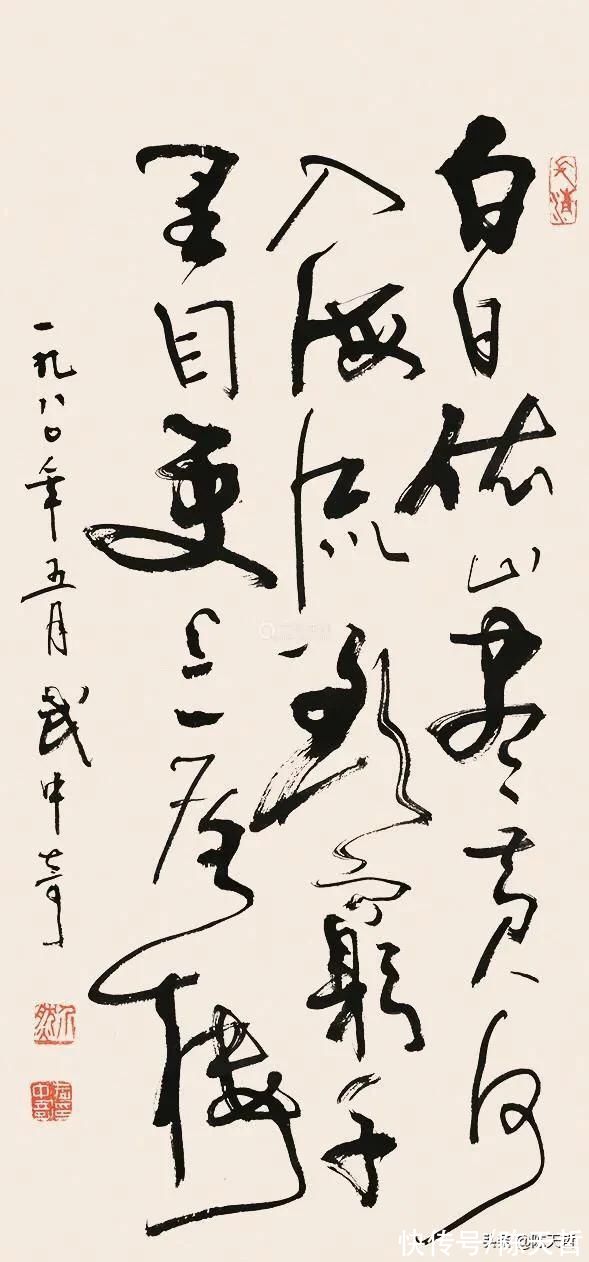 白日依山尽黄河
入海流欲窮千
里目更上一层楼
一九八〇年五月武中奇
快传号/陈天哲
头条@陈天哲